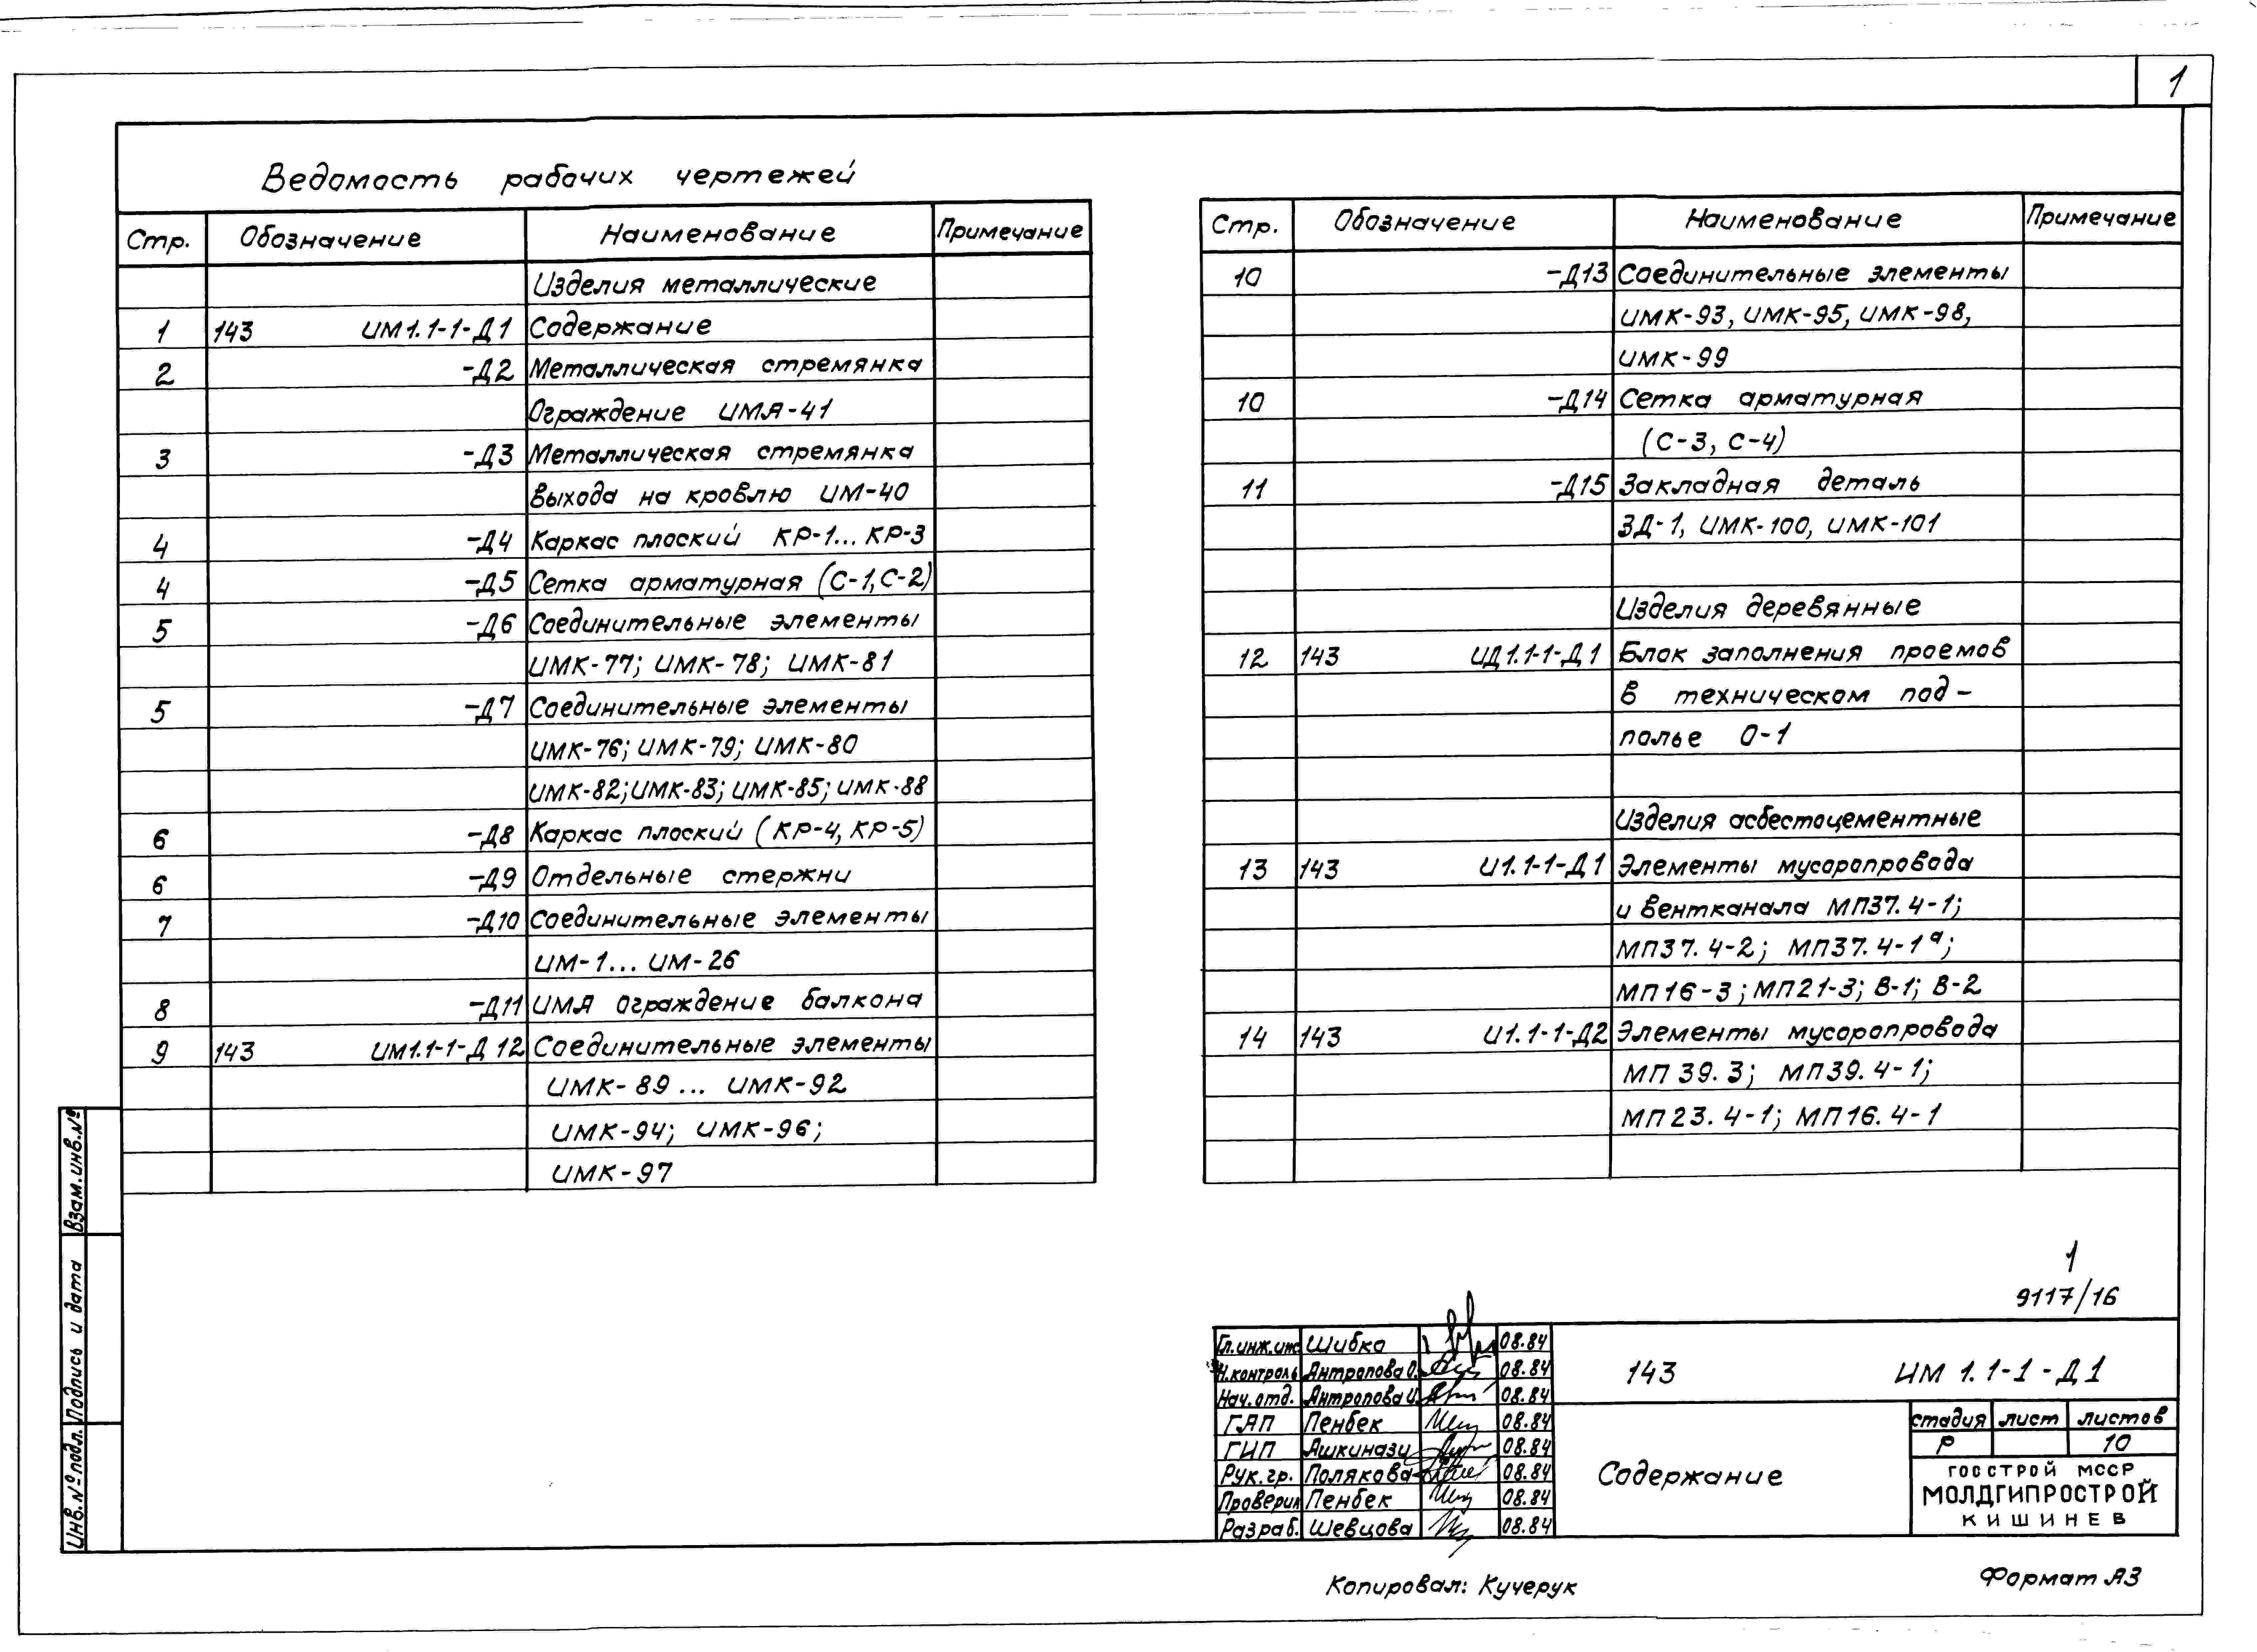 1
Ведомость рабочих чертежей
Стр. Обозначение Наименование Примечание
Изделия металлические
1 143 ИМ1.1-1-Д1 Содержание
2 -Д2 Металлическая стремянка
Ограждение ИМЯ-41
3 -Д3 Металлическая стремянка
выхода на кровлю ИМ-40
4 -Д4 Каркас плоский КР-1... КР-3
4 -Д5 Сетка арматурная (С-1, С-2)
5 -Д6 Соединительные элементы
ИМК-77; ИМК-78; ИМК-81
5 -Д7 Соединительные элементы
ИМК-76; ИМК-79; ИМК-80
ИМК-82; ИМК-83; ИМК-85; ИМК-88
6 -Д8 Каркас плоский (КР-4, КР-5)
6 -Д9 Отдельные стержни
7 -Д10 Соединительные элементы
ИМ-1... ИМ-26
8 -Д11 ИМЯ ограждение балкона
9 143 ИМ1.1-1-Д 12 Соединительные элементы
ИМК-89... ИМК-92
ИМК-94; ИМК-96;
ИМК-97
Стр. Обозначение Наименование Примечание
10 -Д13 Соединительные элементы
ИМК-93, ИМК-95, ИМК-98,
ИМК-99
10 -Д14 Сетка арматурная
(С-3, С-4)
11 -Д15 Закладная деталь
ЗД-1, ИМК-100, ИМК-101
Изделия деревянные
12 143 ИД1.1-1-Д1 Блок заполнения проемов
в техническом под-
полье О-1
Изделия асбестоцементные
13 143 И1.1-1-Д1 Элементы мусоропровода
и вентканала МП37.4-1;
МП37.4-2; МП37.4-1ᵃ;
МП16-3; МП21-3; В-1; В-2
14 143 И1.1-1-Д2 Элементы мусоропровода
МП39.3; МП39.4-1;
МП23.4-1; МП16.4-1
Взам.инв.№
Подпись и дата
Инв.№ подл.
1
9117/16
Гл.инж.ин. Шибко 08.84
Н.контроль Антропова О. 08.84
Нач.отд. Антропова И. 08.84
ГАП Пенбек 08.84
ГИП Ашкинази 08.84
Рук.гр. Полякова 08.84
Проверил Пенбек 08.84
Разраб. Шевцова 08.84
143 ИМ 1.1-1-Д1
Содержание
стадия лист листов
Р 10
ГОССТРОЙ МССР
МОЛДГИПРОСТРОЙ
КИШИНЕВ
Копировал: Кучерук
Формат А3